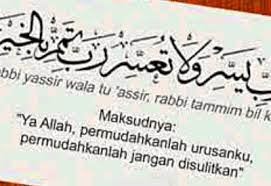 يسر ولا تعسر رب تمم بالخير
bbi yassir wala tu 'assir, rabbi tammim bil k
Maksudnya:
"Ya Allah, permudahkanlah urusanku,
permudahkanlah jangan disulitkan"